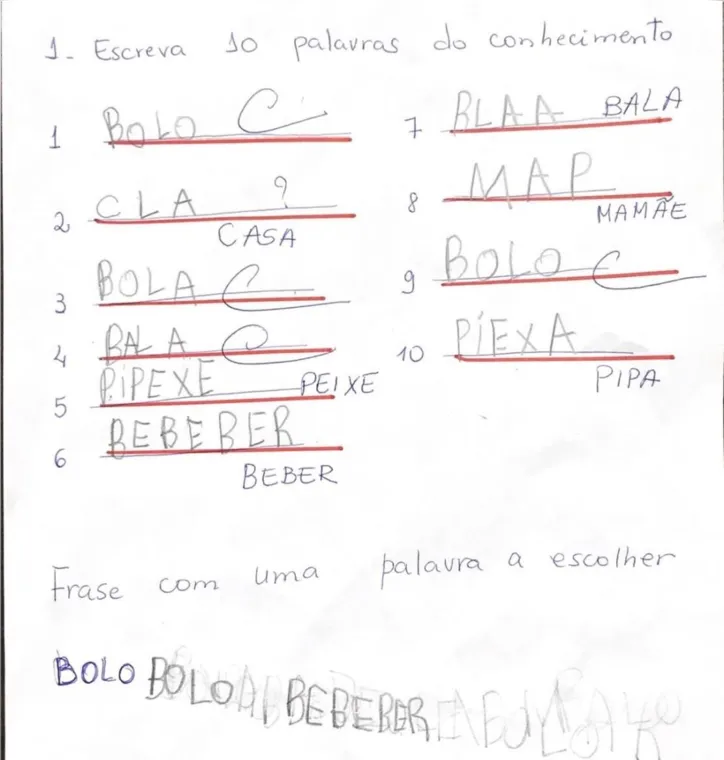 1- Escreva 10 palavras do conhecimento
1 BOLO C
2 CLA ?
CASA
3 BOLA C
4 BALA C
5 PIPEXE PEIXE
6 BEBEBER
BEBER
7 BLAA BALA
8 MAP
MAMÃE
9 BOLO C
10 PÍEXA
PIPA
Frase com uma palavra a escolher
BOLO BOLO, BEBEBER